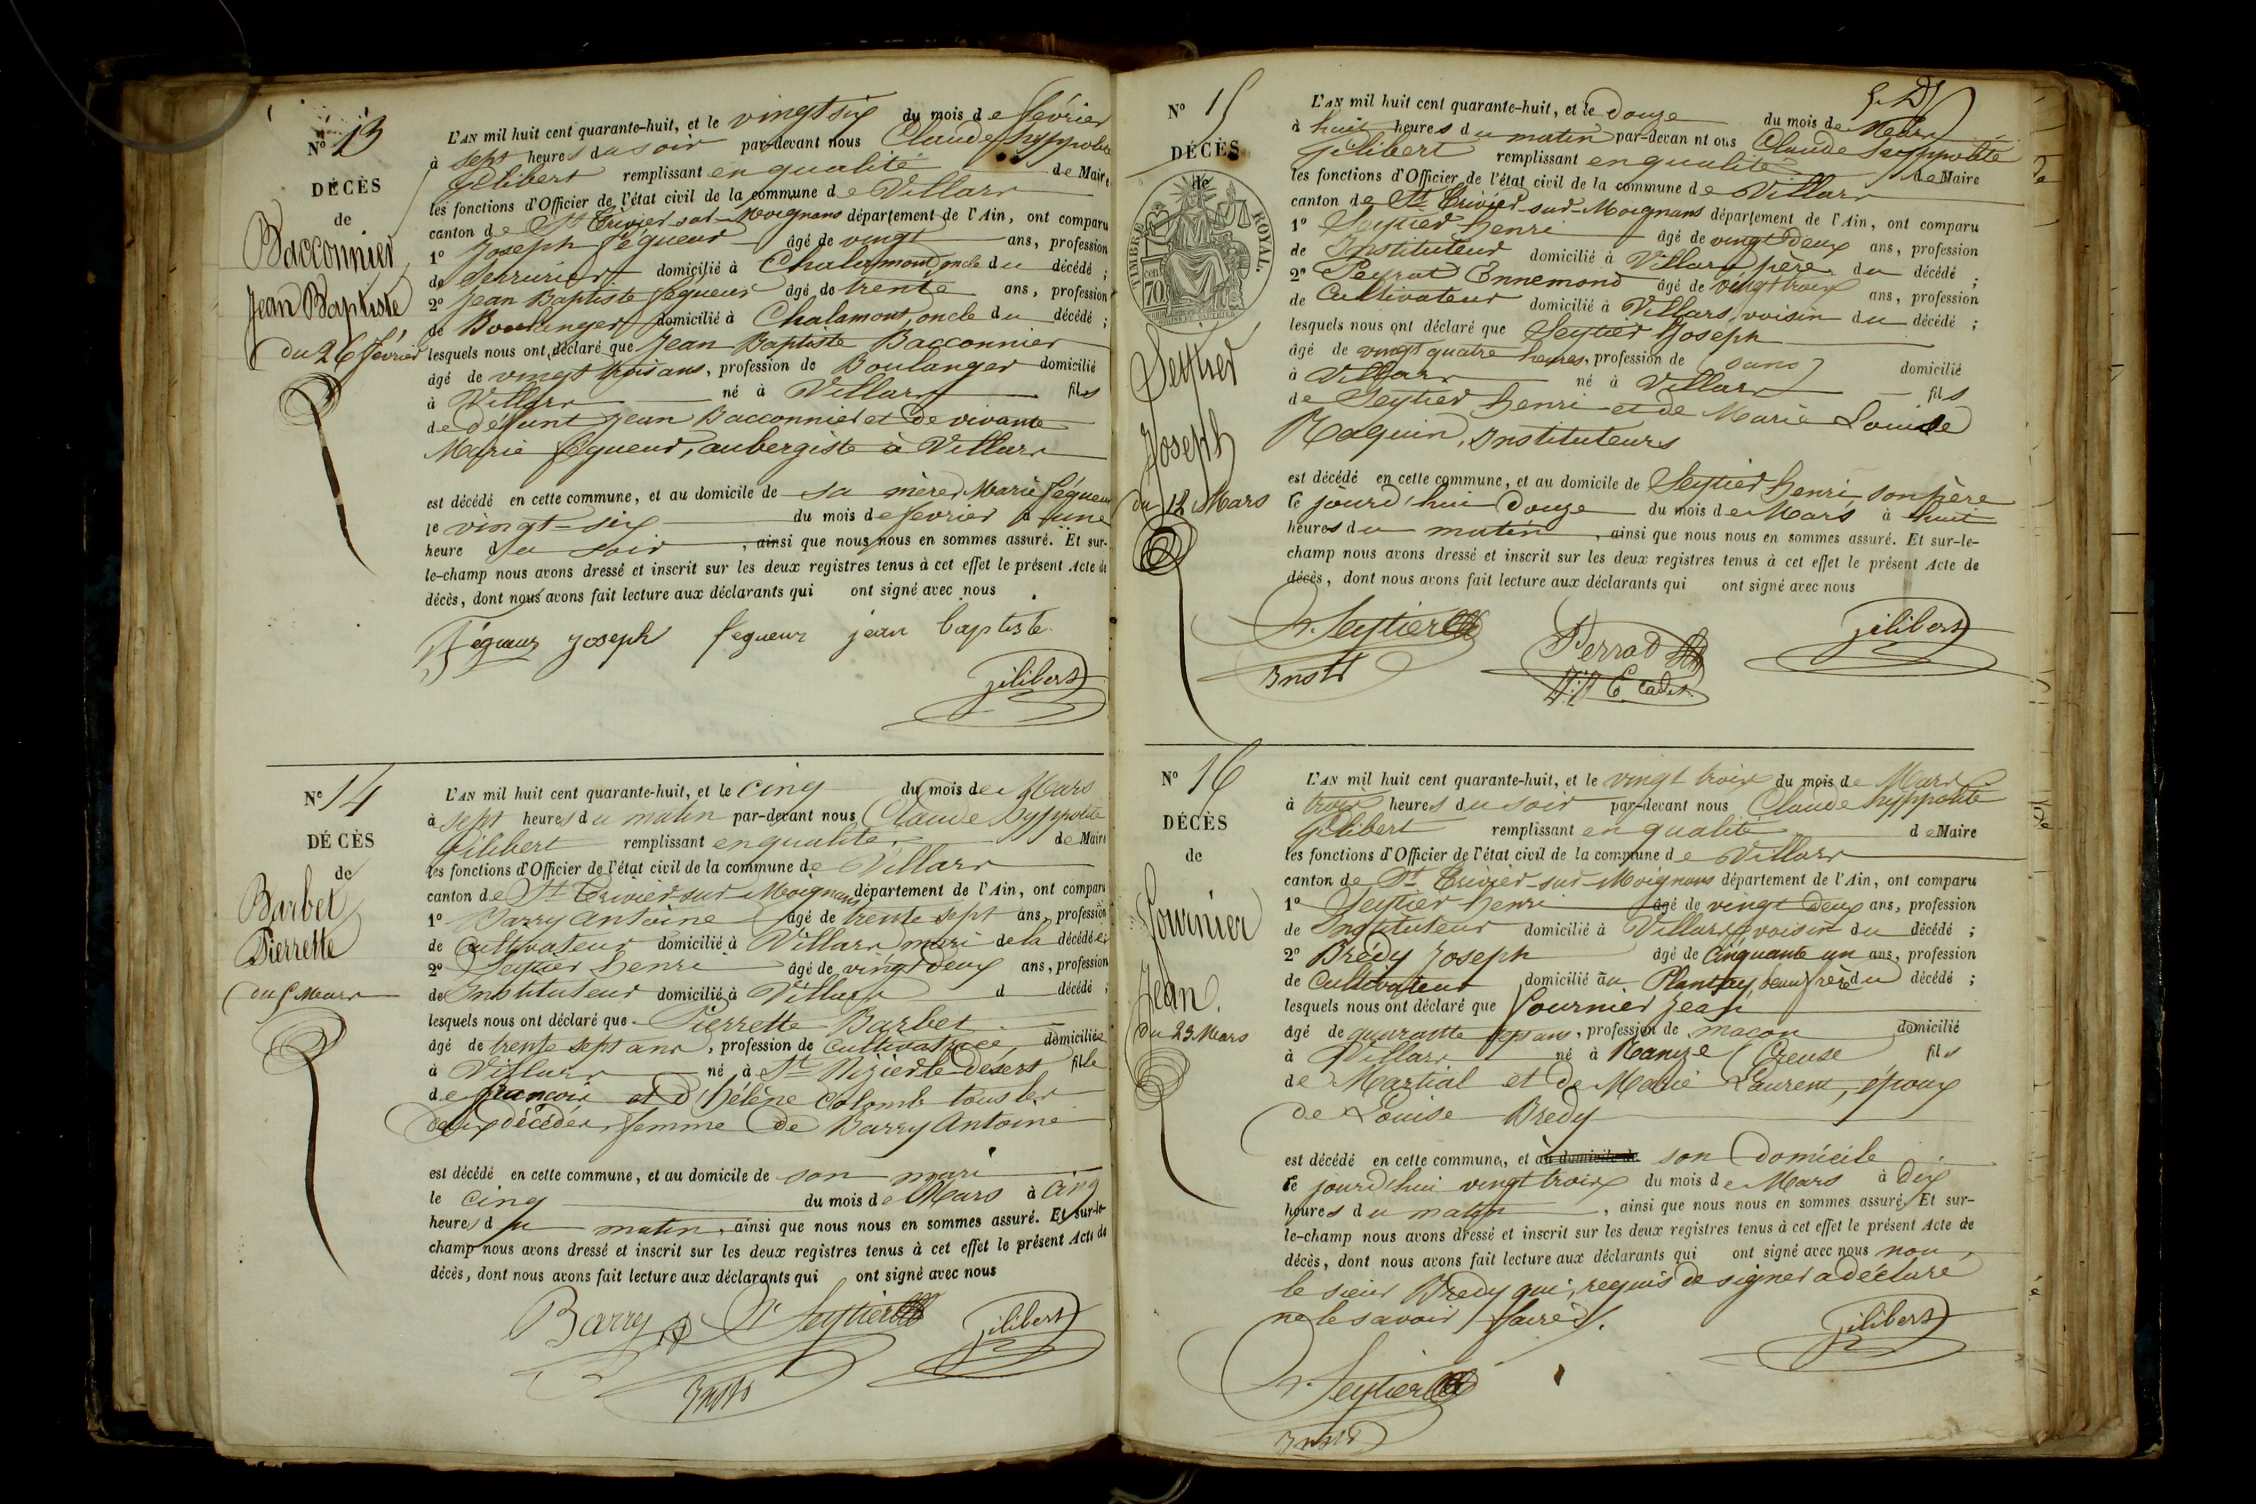 Nº 13
DÉCÈS
de
Bacconnier
Jean Baptiste
du 26 février
L'AN mil huit cent quarante-huit, et le vingt six du mois de février
à sept heures du soir par-devant nous Claude hyppolite
Gilibert remplissant en qualité de Maire
les fonctions d'Officier de l'état civil de la commune de Villars
canton de St Trivier-sur-Moignans département de l'Ain, ont comparu
1º Joseph Fégueur âgé de vingt ans, profession
de Serrurier domicilié à Chalamont, oncle du décédé ;
2º Jean Baptiste fegueur âgé de trente ans, profession
de Boulanger domicilié à Chalamont, oncle du décédé ;
lesquels nous ont déclaré que Jean Baptiste Bacconnier
âgé de vingt trois ans, profession de Boulanger domicilié
à Villars né à Villars fils
de défunt Jean Bacconnier et de vivante
Marie fegueur, aubergiste à Villars
est décédé en cette commune, et au domicile de sa mère Marie fégueur
le vingt-six du mois de fevrier à une
heure du soir, ainsi que nous nous en sommes assuré. Et sur-
le-champ nous avons dressé et inscrit sur les deux registres tenus à cet effet le présent Acte de
décès, dont nous avons fait lecture aux déclarants qui ont signé avec nous
Fégueur joseph fegueur jean baptiste
gilibert
Nº 14
DÉCÈS
de
Barbet
Pierrette
du 5 Mars
L'AN mil huit cent quarante-huit, et le cinq du mois de Mars
à sept heures du matin par-devant nous Claude hyppolite
Gilibert remplissant en qualité de Maire
les fonctions d'Officier de l'état civil de la commune de Villars
canton de St Trivier-sur-Moignans département de l'Ain, ont comparu
1º Barry Antoine âgé de trente sept ans, profession
de Cultivateur domicilié à Villars mari de la décédée ;
2º Seytier henri âgé de vingt deux ans, profession
de Instituteur domicilié à Villars d décédé ;
lesquels nous ont déclaré que Pierrette Barbet
âgé de trente sept ans, profession de cultivatrice, domiciliée
à Villars né à St Nizier le Désert fille
de françois et d'hélène Colomb tous les
deux décédés, femme de Barry Antoine
est décédé en cette commune, et au domicile de son mari
le cinq du mois de Mars à cinq
heures du matin, ainsi que nous nous en sommes assuré. Et sur-le-
champ nous avons dressé et inscrit sur les deux registres tenus à cet effet le présent Acte de
décès, dont nous avons fait lecture aux déclarants qui ont signé avec nous
Barry h. Seytier gilibert
Instr
Nº 15
DÉCÈS
de
TIMBRE ROYAL
70
Seytier
Joseph
du 12 Mars
L'AN mil huit cent quarante-huit, et le douze du mois de Mars
à huit heures du matin par-devant nous Claude hyppolite
Gilibert remplissant en qualité de Maire
les fonctions d'Officier de l'état civil de la commune de Villars
canton de St Trivier-sur-Moignans département de l'Ain, ont comparu
1º Seytier henri âgé de vingt deux ans, profession
de Instituteur domicilié à Villars père du décédé ;
2º Peyrat Ennemond âgé de vingt trois ans, profession
de Cultivateur domicilié à Villars, voisin du décédé ;
lesquels nous ont déclaré que Seytier Joseph
âgé de vingt quatre heures, profession de sans domicilié
à Villars né à Villars fils
de Seytier henri et de Marie Louise
Raquin, Instituteurs
est décédé en cette commune, et au domicile de Seytier henri, son père
le jourd'hui douze du mois de Mars à huit
heures du matin, ainsi que nous nous en sommes assuré. Et sur-le-
champ nous avons dressé et inscrit sur les deux registres tenus à cet effet le présent Acte de
décès, dont nous avons fait lecture aux déclarants qui ont signé avec nous
h. Seytier Perrod gilibert
Instr
Nº 16
DÉCÈS
de
Fournier
Jean.
du 23 Mars
L'AN mil huit cent quarante-huit, et le vingt trois du mois de Mars
à trois heures du soir par-devant nous Claude hyppolite
Gilibert remplissant en qualité de Maire
les fonctions d'Officier de l'état civil de la commune de Villars
canton de St Trivier-sur-Moignans département de l'Ain, ont comparu
1º Seytier henri âgé de vingt deux ans, profession
de Instituteur domicilié à Villars, voisin du décédé ;
2º Brédy Joseph âgé de cinquante un ans, profession
de Cultivateur domicilié au Plantay, beau frère du décédé ;
lesquels nous ont déclaré que fournier Jean
âgé de quarante sept ans, profession de maçon domicilié
à Villars né à Naneze (Creuse fils
de Martial et de Marie Laurent, époux
de Louise Bredy
est décédé en cette commune, et à son domicile
le jourd'hui vingt trois du mois de Mars à dix
heures du matin, ainsi que nous nous en sommes assuré. Et sur-
le-champ nous avons dressé et inscrit sur les deux registres tenus à cet effet le présent Acte de
décès, dont nous avons fait lecture aux déclarants qui ont signé avec nous non,
le sieur Bredy qui, requis de signer a déclaré
ne le savoir faire.
h. Seytier gilibert
Instr